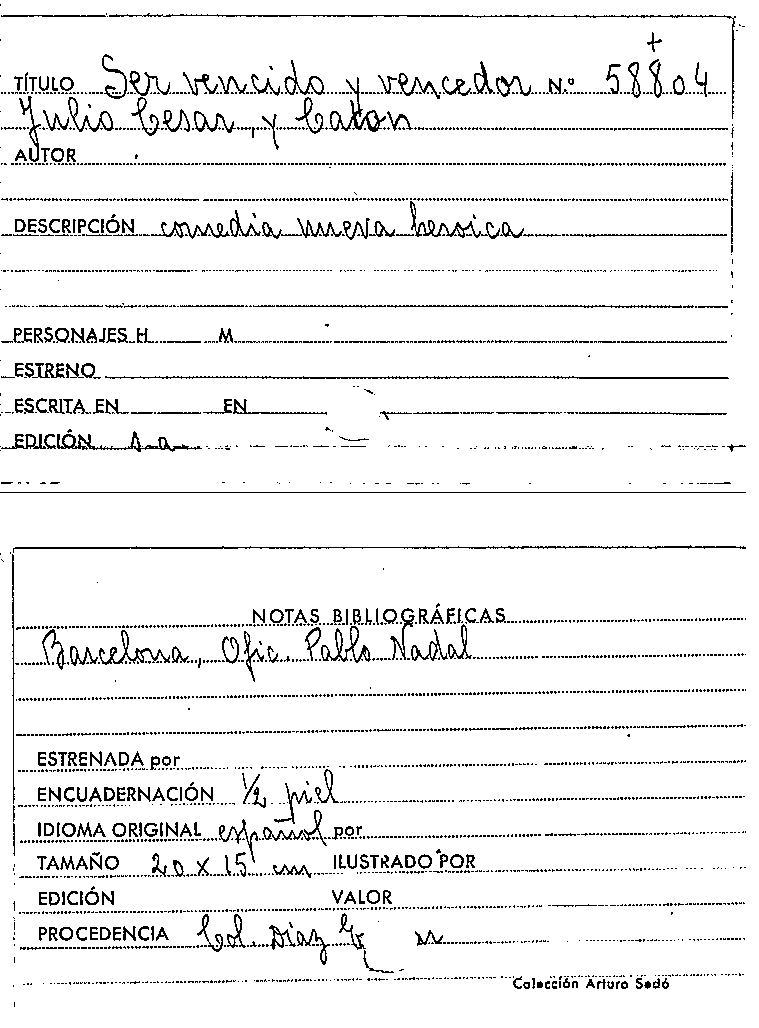 +
TÍTULO Ser vencido y vencedor N.º 58804
Julio Cesar, y Caton
AUTOR
DESCRIPCIÓN comedia nueva heroica
PERSONAJES H M
ESTRENO
ESCRITA EN EN
EDICIÓN s.a.
NOTAS BIBLIOGRÁFICAS
Barcelona, Ofic. Pablo Nadal
ESTRENADA por
ENCUADERNACIÓN 1/2 piel
IDIOMA ORIGINAL español por
TAMAÑO 20 x 15 cm ILUSTRADO POR
EDICIÓN VALOR
PROCEDENCIA Col. Díaz
Colección Arturo Sedó